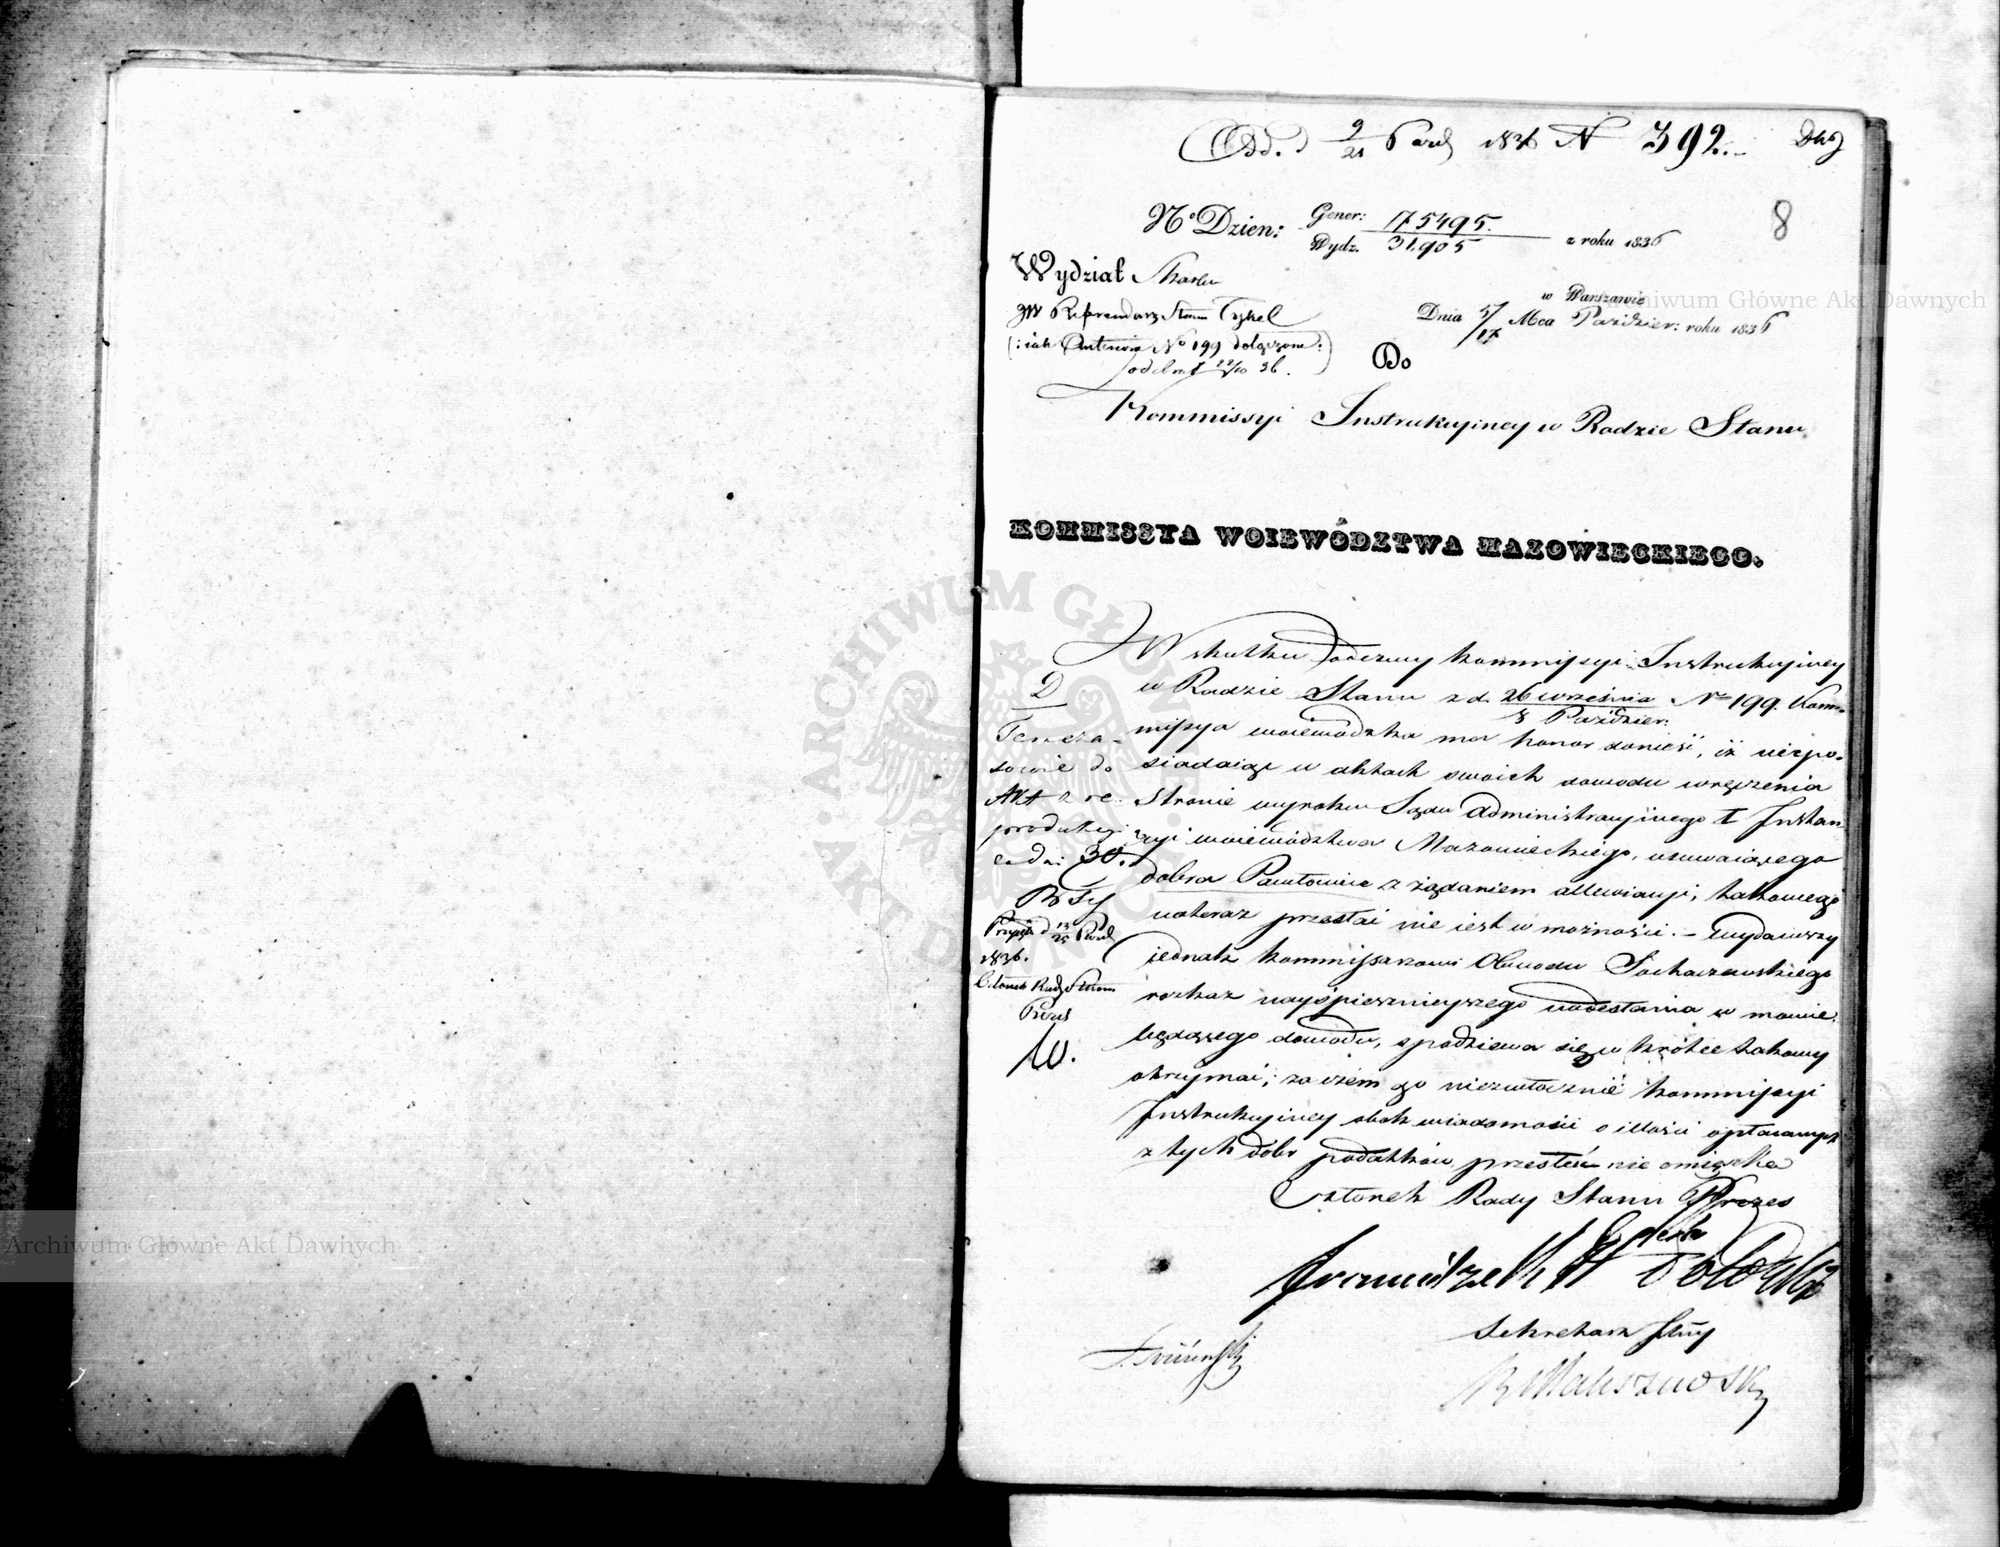 Odd. 9/21 Paźd 1836 N 392.
8
No Dzien: Gener: 75495.
Wydz. 31,905 z roku 1836
Wydział Skarbu
w Warszawie
Dnia 5/17 Mca Paździer: roku 1836
JW Referendarz Stanu
(: iak No 199 dołączone :)
odebrał 22/10 36.
Do
Kommissyi Instrukcyiney w Radzie Stanu
KOMMISSYA WOIEWÓDZTWA MAZOWIECKIEGO.
W skutku odezwy Kommissyi Instrukcyiney
w Radzie Stanu z d. 26 września / 8 Paździer: No 199. Kom-
missya woiewódzka ma honor donieść, iż niepo-
siadaiąc w aktach swoich dowodu wręczenia
stronie wyroku Sądu Administracyinego I Instan-
cyi woiewództwa Mazowieckiego, usuwaiącego
dobra Pawłowice z żądaniem allewiacyi, takowego
nateraz przesłać nie iest w możności. – Wydawszy
iednak Kommissarzowi Obwodu Sochaczewskiego
rozkaz nayśpiesznieyszego nadesłania w mowie
będącego dowodu, spodziewa się w krótce takowy
otrzymać; za czem go niezwłocznie Kommissyi
Instrukcyiney obok wiadomości o ilości opłacanych
z tych dóbr podatków przesłać nie omieszka
Członek Rady Stanu Prezes
D
Tymcza-
sowie do
Akt z re-
produkcyą
za dni 30.
13/25 Paźd
1836.
Członek Rady Stanu
Prezes
Sekretarz Jlny
Archiwum Główne Akt Dawnych
Archiwum Główne Akt Dawnych
ARCHIWUM GŁÓWNE AKT DAWNYCH